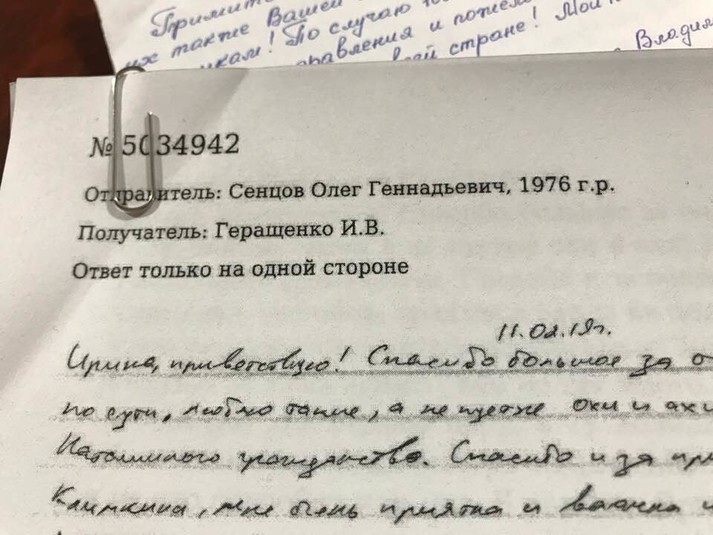 Примите
их также Вашей
! По случаю
и
стране! Мои
Владим
№ 5034942
Отправитель: Сенцов Олег Геннадьевич, 1976 г.р.
Получатель: Геращенко И.В.
Ответ только на одной стороне
11.02.19г.
Ирина, приветствую! Спасибо большое за о
по сути, люблю такие, а не пустые охи и ахи
гражданства. Спасибо и за при
Климкина, мне очень приятна и важна и